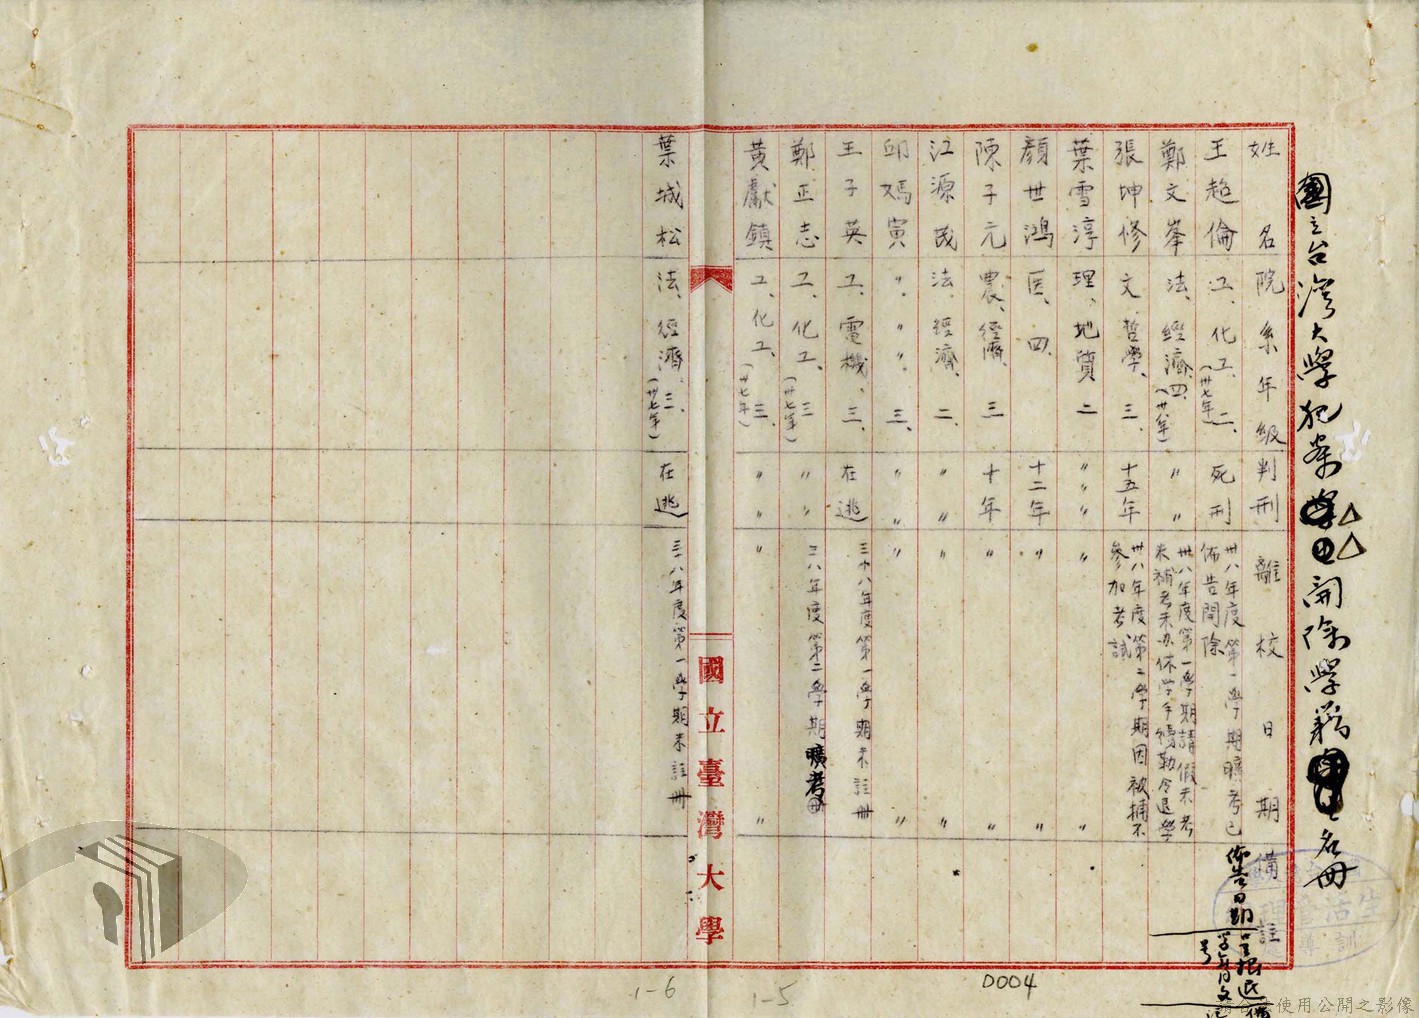 國立台灣大學犯案開除學籍名冊
姓名 院系年級 判刑 離校日期 備註
王超倫 工、化工、二、(卅七年) 死刑 卅八年度第一學期曠考已佈告開除
佈告日期
鄭文峯 法、經濟、四、(卅八年) 〃 〃 卅八年度第一學期請假未考未補考未办休学手續勒令退學
張坤修 文、哲學、三、 十五年 卅八年度第二學期因被捕不參加考試
葉雪淳 理、地質 二 〃 〃 〃 〃 〃
顏世鴻 医、四、 十二年 〃 〃
陳子元 農、經濟、三 十年 〃 〃
江源茂 法、經濟、二 〃 〃 〃 〃
邱媽寅 〃、〃〃、三、 〃 〃 〃 〃
王子英 工、電機、三、 在逃 三十八年度第一學期未註冊
鄭正志 工、化工、三(卅七年) 〃 〃 三八年度第二學期曠考
黃獻鎮 工、化工、三、(卅七年) 〃 〃 〃 〃
國立臺灣大學
葉城松 法、經濟、三、(卅七年) 在逃 三十八年度第一學期未註冊
1-6
1-5
D004
請合法使用公開之影像